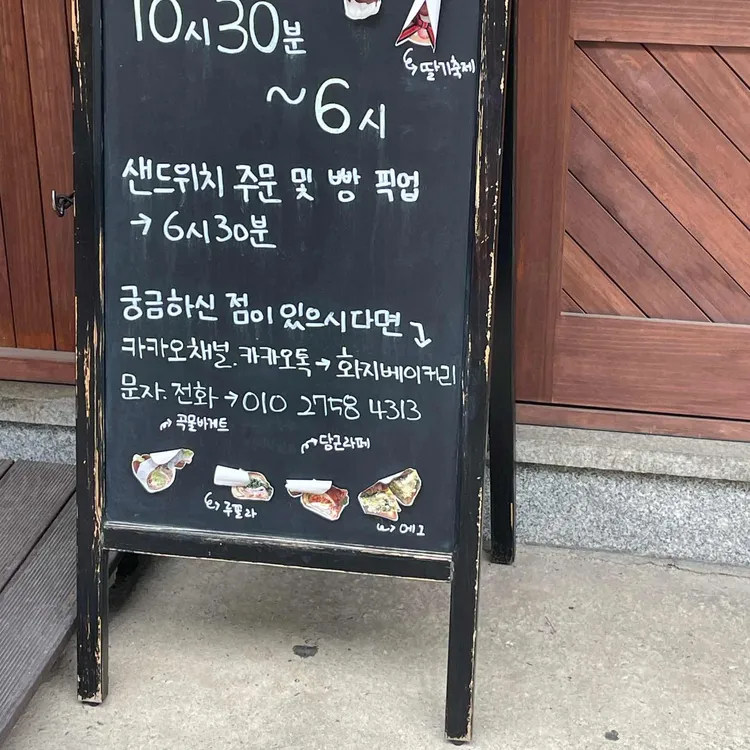 10시30분
딸기축제
~6시
샌드위치 주문 및 빵 픽업
→ 6시30분
궁금하신 점이 있으시다면
카카오채널.카카오톡 → 화지베이커리
문자.전화 → 010 2758 4313
곡물바게트
당근라페
루꼴라
에그